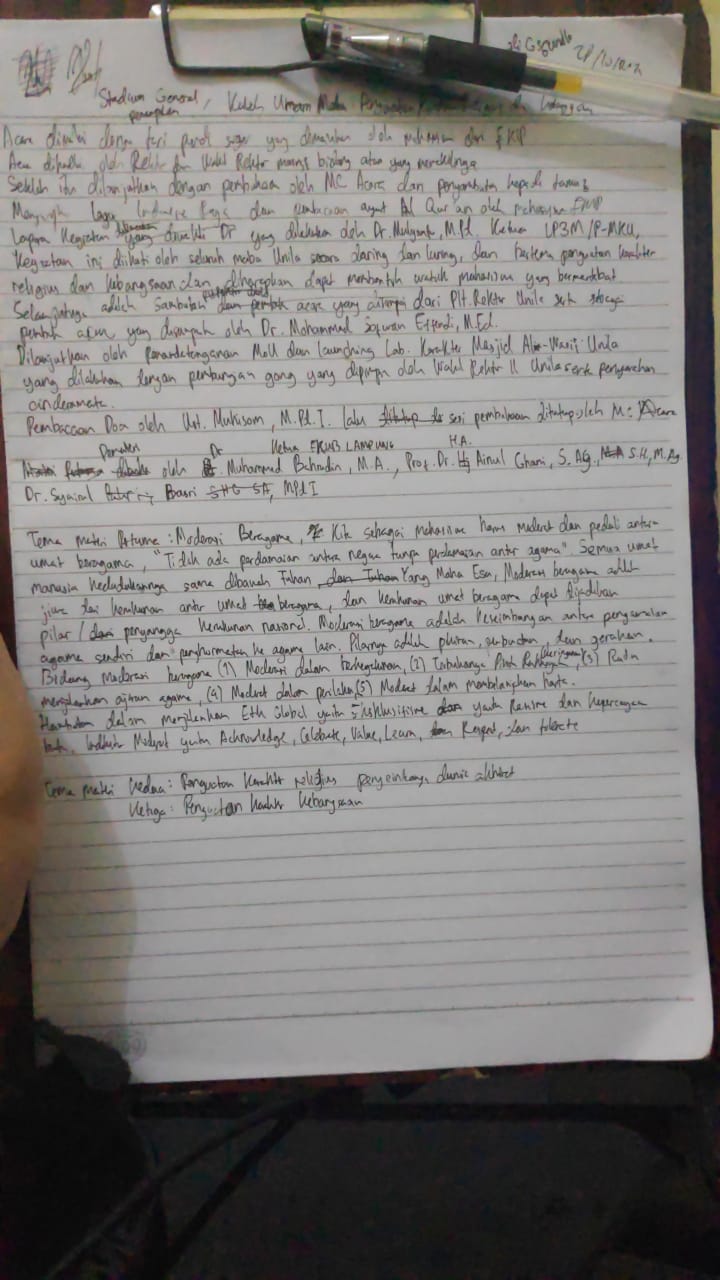 Stadium General, Kuliah Umum Maba Penguatan
penerapan
Acara dimulai dengan tari yang dimainkan oleh mahasiswa dari FKIP
Acara dihadiri oleh Rektor dan Wakil Rektor masing bidang atau yang mewakilinya
Setelah itu dilanjutkan dengan pembukaan oleh MC Acara dan penyambutan kepada tamu
Menyanyikan Lagu Indonesia Raya dan pembacaan ayat Al Qur'an oleh mahasiswa FKIP
Laporan Kegiatan yang dilakukan oleh Dr. Mulyanto, M.Pd. Ketua LP3M/P-MKU,
Kegiatan ini diikuti oleh seluruh maba Unila secara daring dan luring, dan bertema penguatan karakter
religius dan kebangsaan dan diharapkan dapat membentuk watak mahasiswa yang bermartabat
Selanjutnya adalah Sambutan acara yang dari Plt. Rektor Unila serta sebagai
pembuka acara yang oleh Dr. Mohammad Sofwan Effendi, M.Ed.
Dilanjutkan oleh Penandatanganan MoU dan launching Lab. Karakter Masjid Al-Wasi'i Unila
yang dilakukan dengan gong yang dipimpin oleh Wakil Rektor II Unila serta penyerahan
cinderamata.
Pembacaan Doa oleh Ust. Mukisom, M.Pd.I. lalu sesi pembukaan ditutup oleh MC Acara
Pemateri Dr Ketua FKUB LAMPUNG
oleh Muhammad Bahrudin, M.A., Prof. Dr. H.A. Ainul Ghani, S.AG, S.H, M.Ag
Dr. Basri M.Pd.I
Tema materi Pertama: Moderasi Beragama, Kita sebagai mahasiswa harus moderat dan peduli antara
umat beragama, "Tidak ada perdamaian antara negara tanpa perdamaian antar agama" Semua umat
manusia kedudukannya sama dibawah Tuhan Yang Maha Esa, Moderasi beragama adalah
jiwa dari kerukunan antar umat beragama, dan kerukunan umat beragama dapat dijadikan
pilar / penyangga kerukunan nasional. Moderasi beragama adalah keseimbangan antara pengamalan
agama sendiri dan penghormatan ke agama lain. Pilarnya adalah pikiran, perbuatan, dan gerakan.
Bidang moderasi beragama (1) Moderasi dalam berkeyakinan, (2) (3)
menjalankan ajaran agama, (4) Moderat dalam perilaku (5) Moderat dalam membelanjakan harta.
Hambatan dalam menjalankan Etik Global yaitu Eksklusifisme yaitu Rasisme dan kepercayaan
buta, Moderat yaitu Acknowledge, Celebrate, Value, Learn, Respect, dan tolerate
Tema materi kedua: Penguatan karakter religius penyeimbang dunia akhirat
Ketiga: Penguatan karakter kebangsaan